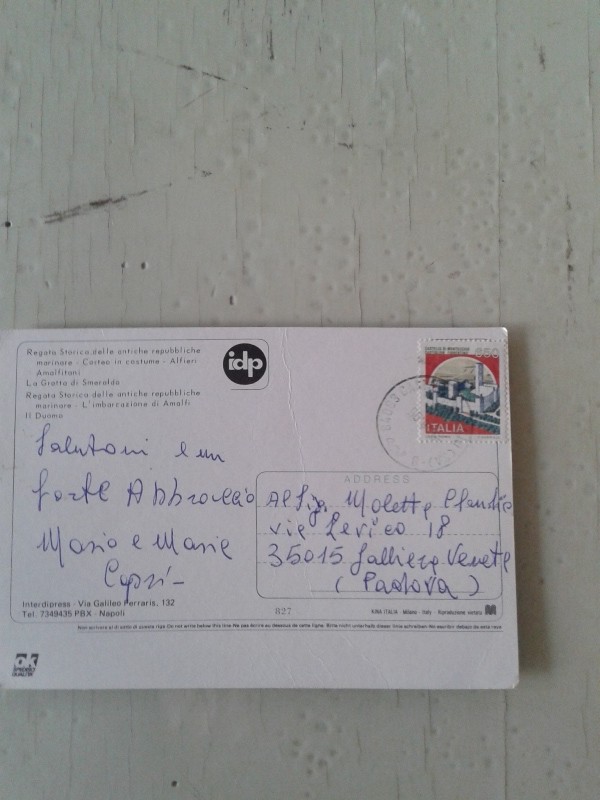 Regata Storica delle antiche repubbliche
marinare - Corteo in costume - Alfieri
Amalfitani
La Grotta di Smeraldo
Regata Storica delle antiche repubbliche
marinare - L'imbarcazione di Amalfi
Il Duomo
idp
ITALIA
Saluti e un
forte Abbraccio
Mario e Marie
Capri -
ADDRESS
Al Sig. Moletta Claudio
via Levico 18
35015 Galliera Veneta
(Padova)
Interdipress - Via Galileo Ferraris, 132
Tel. 7349435 PBX - Napoli
827
KINA ITALIA - Milano - Italy - Riproduzione vietata
ok